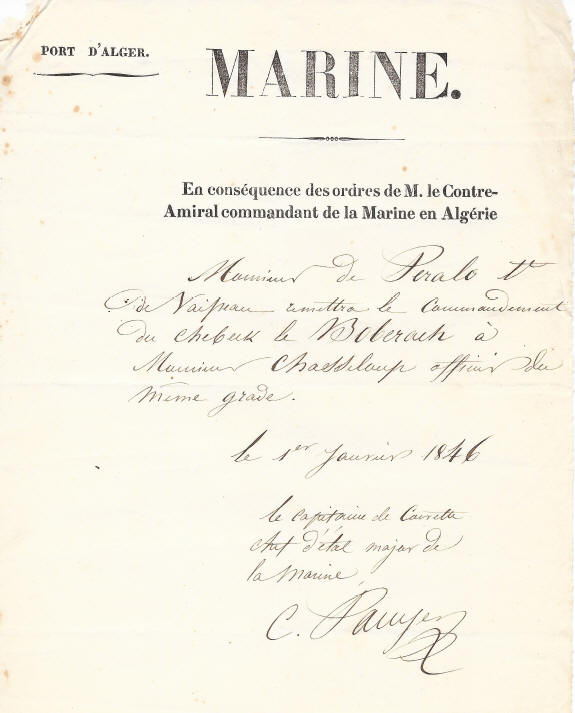 PORT D'ALGER.
MARINE.
En conséquence des ordres de M. le Contre-
Amiral commandant de la Marine en Algérie
Monsieur de Peralo Lt
de Vaisseau remettra le Commandement
du chebeck le Boberach à
Monsieur Chasseloup officier du
même grade.
le 1er Janvier 1846
le capitaine de Corvette
chef d'état major de
la marine
C.